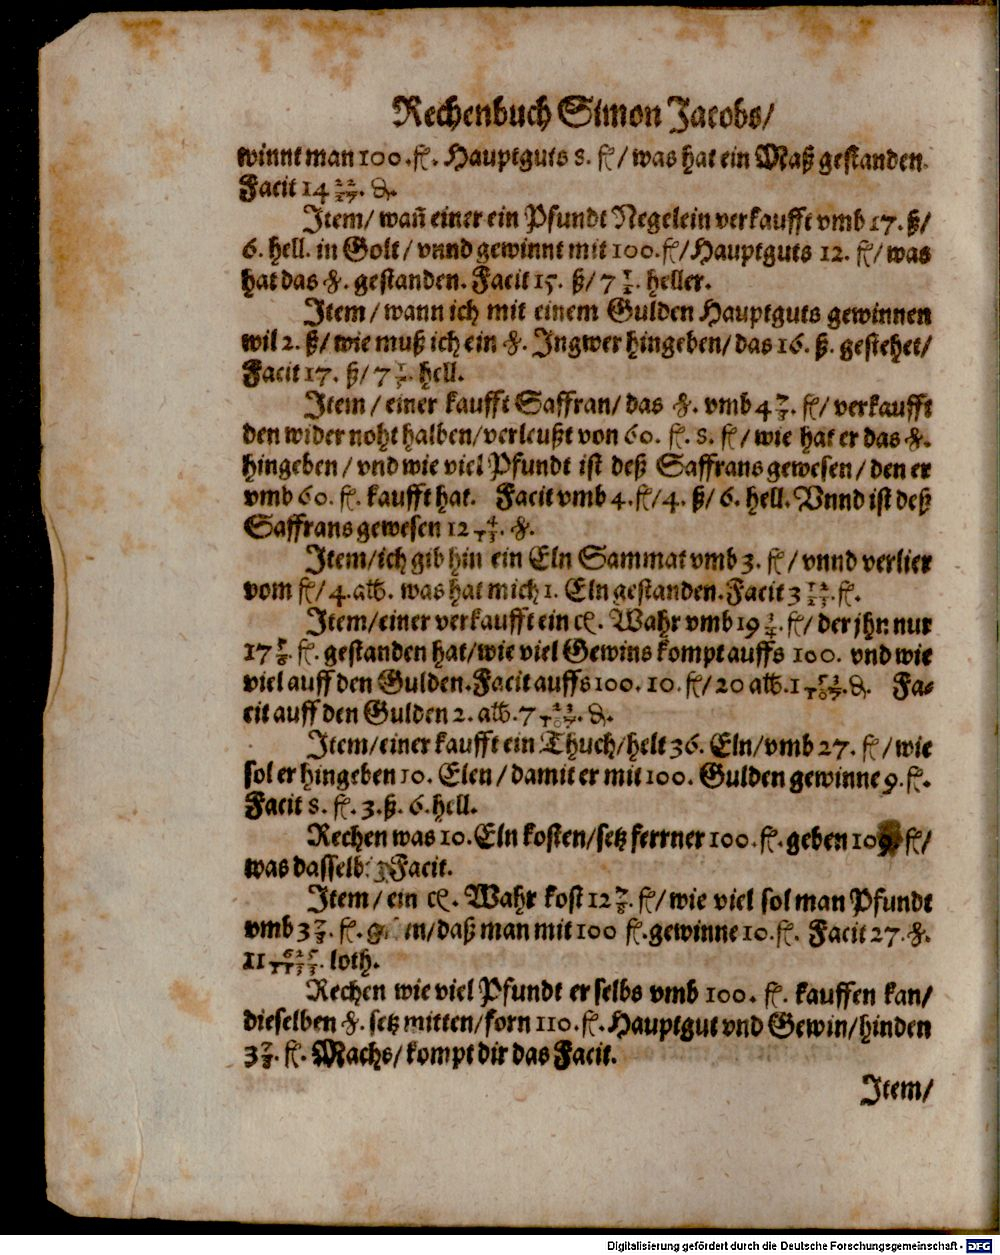 Rechenbuch Simon Jacobs/
winnt man 100. fl. Hauptguts 8. fl/ was hat ein Maß gestanden.
Facit 14 22/27. ₰.
Item/ wañ einer ein Pfundt Negelein verkaufft vmb 17. ß/
6. hell. in Golt/ vnnd gewinnt mit 100. fl/ Hauptguts 12. fl/ was
hat das ℔. gestanden. Facit 15. ß/ 7 1/2. heller.
Item/ wann ich mit einem Gulden Hauptguts gewinnen
wil 2. ß/ wie muß ich ein ℔. Ingwer hingeben/ das 16. ß. gestehet/
Facit 17. ß/ 7 1/5. hell.
Item/ einer kaufft Saffran/ das ℔. vmb 4 7/8. fl/ verkaufft
den wider noht halben/ verleußt von 60. fl. 8. fl/ wie hat er das ℔.
hingeben/ vnd wie viel Pfundt ist deß Saffrans gewesen/ den er
vmb 60. fl. kaufft hat. Facit vmb 4. fl/ 4. ß/ 6. hell. Vnnd ist deß
Saffrans gewesen 12 4/13. ℔.
Item/ ich gib hin ein Eln Sammat vmb 3. fl/ vnnd verlier
vom fl/ 4. alb. was hat mich 1. Eln gestanden. Facit 3 12/23. fl.
Item/ einer verkaufft ein cℓ. Wahr vmb 19 3/4. fl/ der jhn nur
17 5/6. fl. gestanden hat/ wie viel Gewins kompt auffs 100. vnd wie
viel auff den Gulden. Facit auffs 100. 10. fl/ 20 alb. 1 53/107. ₰. Fa-
cit auff den Gulden 2. alb. 7 23/107. ₰.
Item/ einer kaufft ein Thuch/ helt 36. Eln/ vmb 27. fl/ wie
sol er hingeben 10. Elen/ damit er mit 100. Gulden gewinne 9. fl.
Facit 8. fl. 3. ß. 6. hell.
Rechen was 10. Eln kosten/ setz ferrner 100. fl. geben 109. fl/
was dasselb Facit.
Item/ ein cℓ. Wahr kost 12 7/8. fl/ wie viel sol man Pfundt
vmb 3 7/8. fl. / daß man mit 100 fl. gewinne 10. fl. Facit 27. ℔.
11 625/1133. loth.
Rechen wie viel Pfundt er selbs vmb 100. fl. kauffen kan/
dieselben ℔. setz mitten/ forn 110. fl. Hauptgut vnd Gewin/ hinden
3 7/8. fl. Machs/ kompt dir das Facit.
Item/
Digitalisierung gefördert durch die Deutsche Forschungsgemeinschaft - DFG